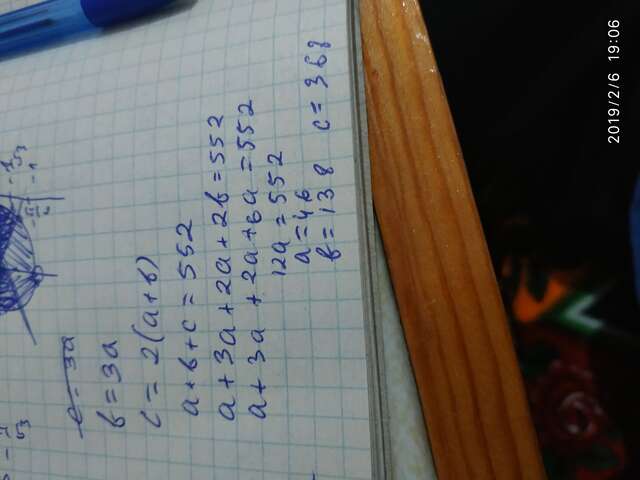 c = 3a
в = 3a
c = 2(a+в)
a+в+c = 552
a+3a+2a+2в=552
a+3a+2a+6a=552
12a = 552
a = 46
в = 138 c = 368
2019/2/6 19:06